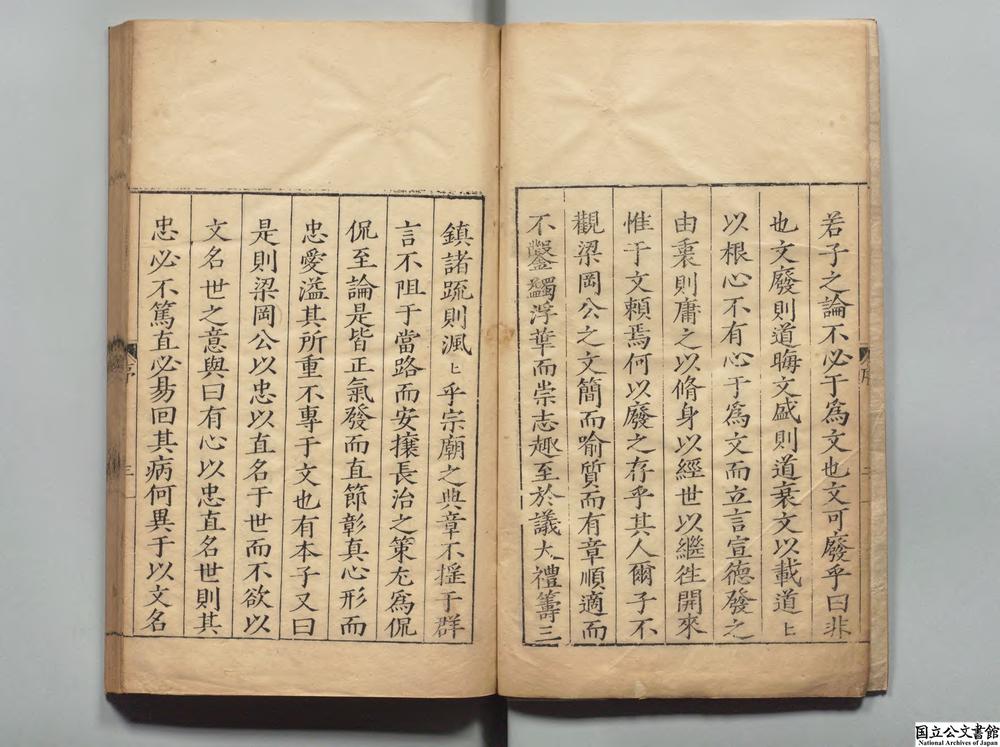 若子之論不必于為文也文可廢乎曰非
也文廢則道晦文盛則道衰文以載道〻
以根心不有心于為文而立言宣德發之
由衷則庸之以脩身以經世以繼徃開來
惟于文賴焉何以廢之存乎其人爾子不
觀梁岡公之文簡而喻質而有章順適而
不鑿蠲浮華而崇志趣至於議大禮籌三
鎮諸䟽則渢〻乎宗廟之典章不揺于群
言不阻于當路而安攘長治之策尤為侃
侃至論是皆正氣發而直節彰真心形而
忠愛溢其所重不專于文也有本子又曰
是則梁岡公以忠以直名于世而不欲以
文名世之意與曰有心以忠直名世則其
忠必不篤直必易回其病何異于以文名
序
三
序
国立公文書館
National Archives of Japan